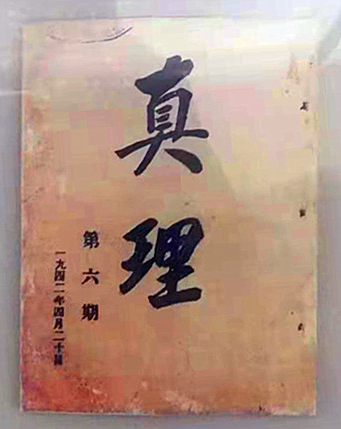 真理
第六期
一九四二年四月二十